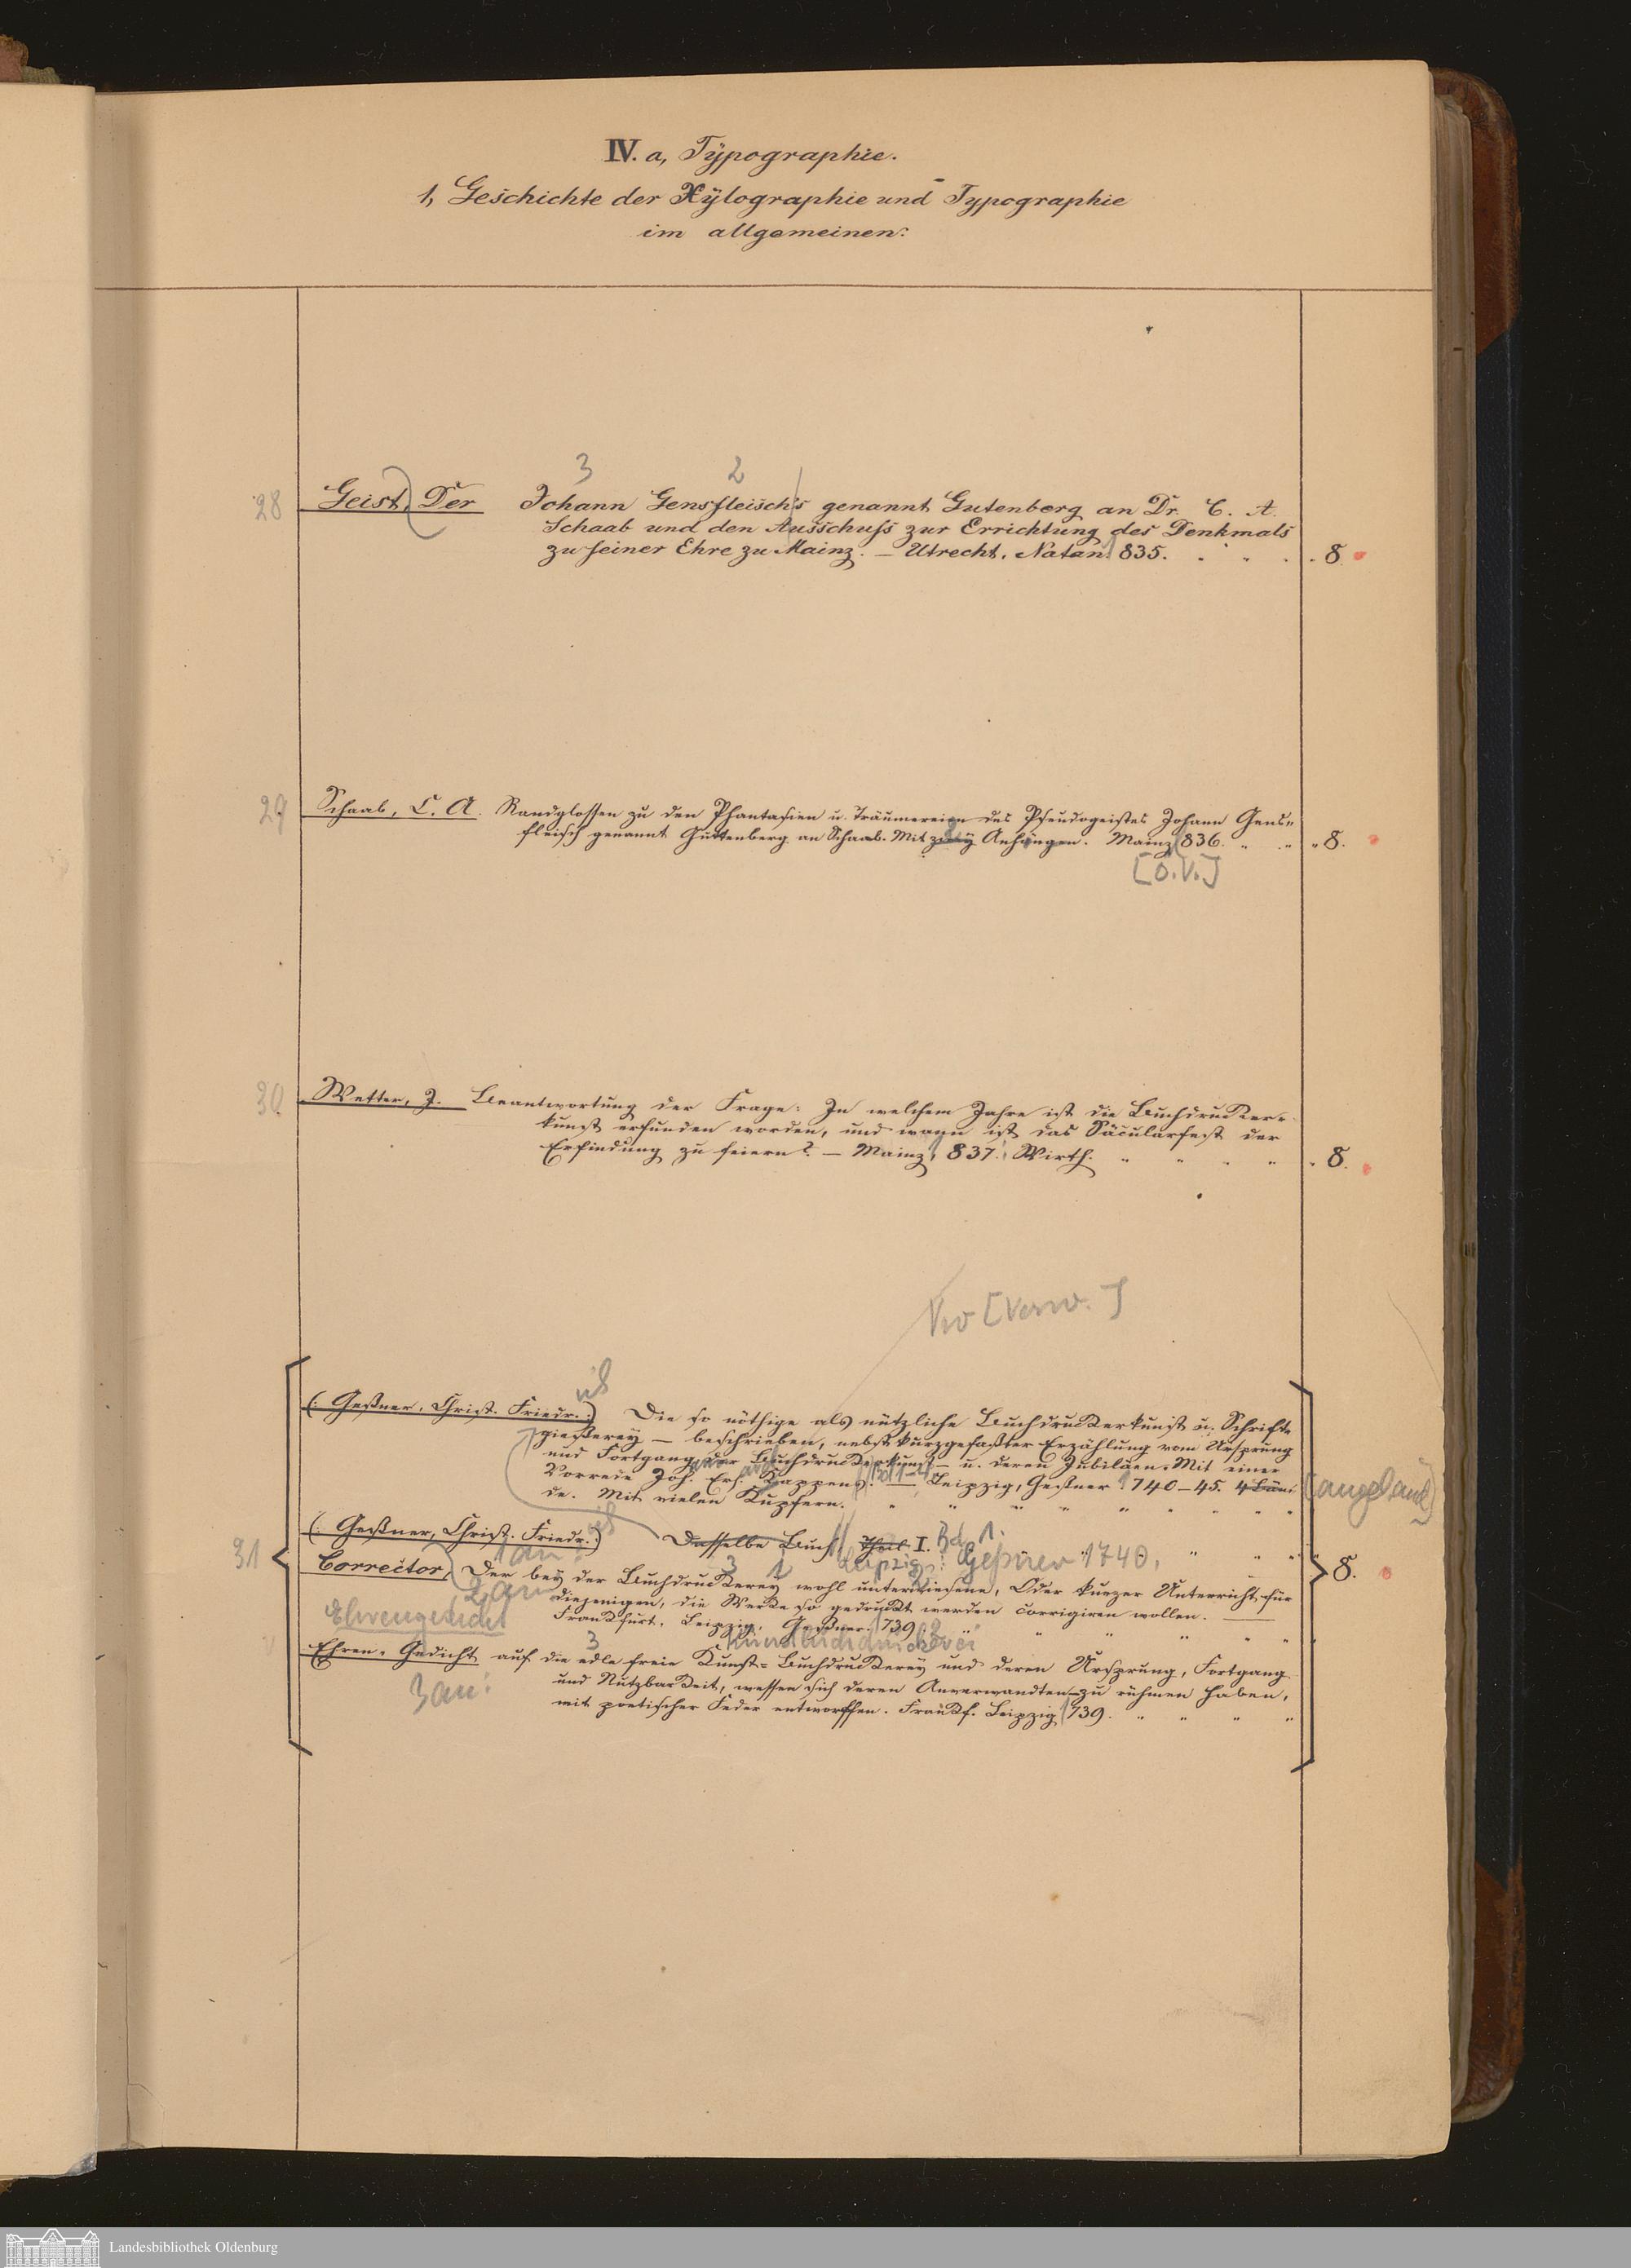 IV. a, Typographie.
1, Geschichte der Xylographie und Typographie
im allgemeinen.
3 2
28 Geist, Der Johann Gensfleisch's genannt Gutenberg an Dr. C. A.
Schaab und den Ausschuss zur Errichtung des Denkmals
zu seiner Ehre zu Mainz. — Utrecht, Natan. 835. 8.
29 Schaab, C. A. Randglossen zu den Phantasien u. Träumereien des Pseudogeistes Johann Gens-
fleisch genannt Guttenberg an Schaab. Mit zwey Anhängen. Mainz 836. 8.
[o. V.]
30 Wetter, J. Beantwortung der Frage: In welchem Jahre ist die Buchdrucker-
kunst erfunden worden, und wann ist das Säcularfest der
Erfindung zu feiern? — Mainz, 837. Wirth. 8.
[Verw.]
(: Geßner, Christ. Friedr. :) Die so nöthige als nützliche Buchdruckerkunst u. Schrift-
gießerey — beschrieben, nebst kurzgefaßter Erzählung vom Ursprung
und Fortgang der Buchdruckerkunst — u. deren Jubiläen. Mit einer
Vorrede Joh. Erh. Kappens. Bd 1-4 — Leipzig, Geßner 1740–45. 4 Bän-
de. Mit vielen Kupfern.
(: Geßner, Christ. Friedr. :) Dasselbe Buch Theil I. Bd. 1.
1 an: Leipzig: Geßner 1740.
31 Corrector, Der bey der Buchdruckerey wohl unterwiesene, Oder kurzer Unterricht für 8.
2 an: diejenigen, die Werke so gedruckt werden corrigiren wollen.
Ehrengedicht Frankfurt, Leipzig, Geßner. 739.
Ehren-Gedicht auf die edle freie Kunst-Buchdruckerey und deren Ursprung, Fortgang
3 an: und Nutzbarkeit, wessen sich deren Anverwandten zu rühmen haben,
mit poetischer Feder entworffen. Frankf. Leipzig 739.
Landesbibliothek Oldenburg